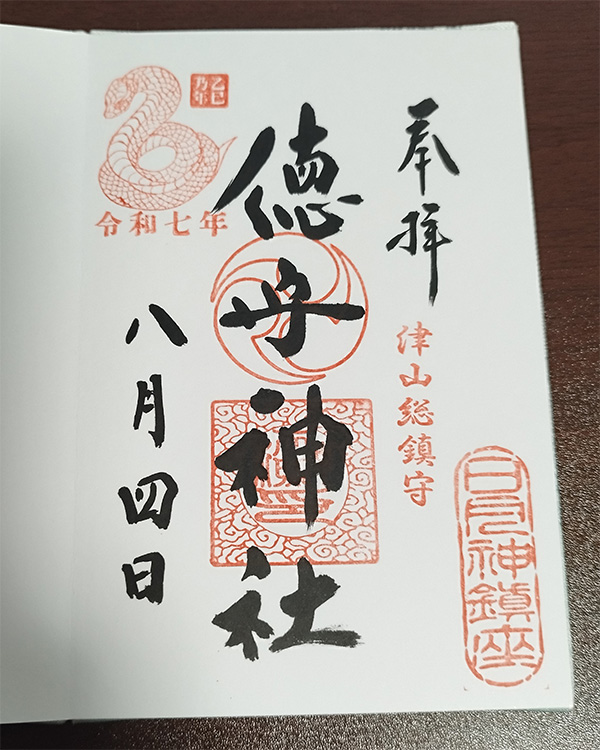 奉拝
津山総鎮守
日月神鎮座
徳守神社
乙巳
乃年
令和七年
八月四日